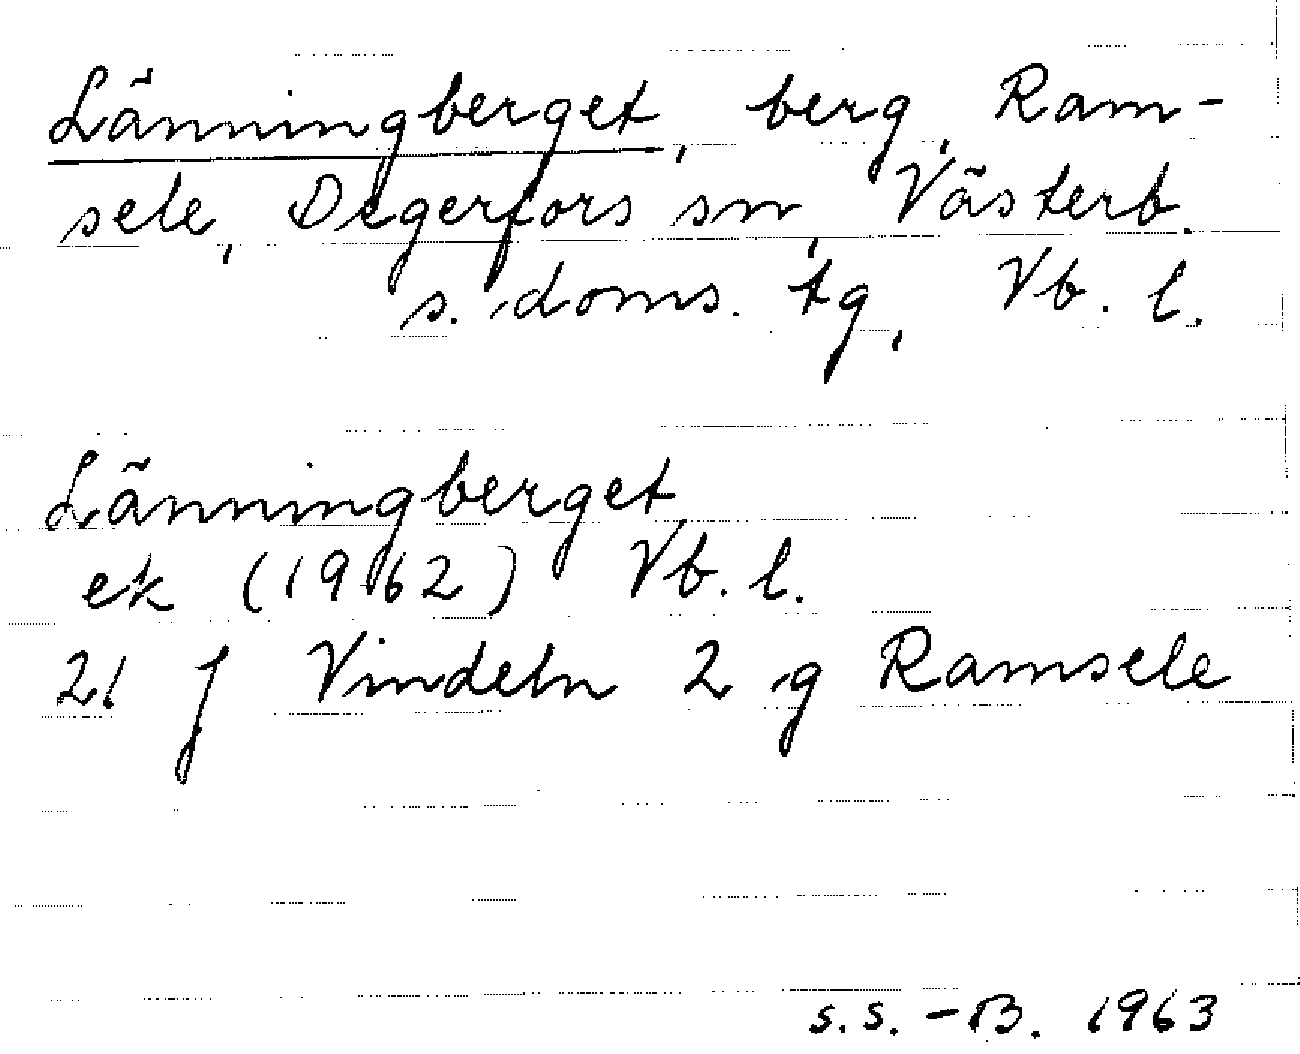 Länningberget, berg, Ram-
sele, Degerfors sn, Västerb.
s. doms. tg, Vb. l.
Länningberget
ek (1962) Vb. l.
21 J Vindeln 2 g Ramsele
s.s. -B. 1963